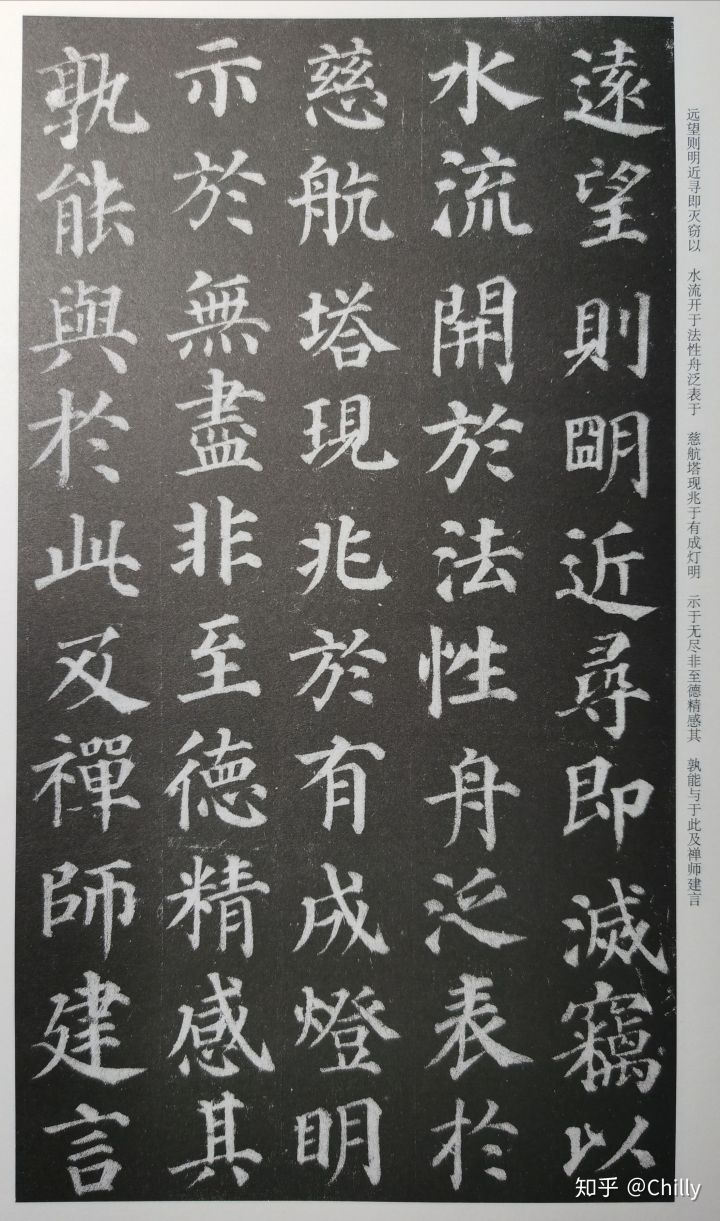 遠望則明近尋即滅竊以
水流開於法性舟泛表於
慈航塔現兆於有成燈明
示於無盡非至德精感其
孰能與於此及禪師建言
远望则明近寻即灭窃以 水流开于法性舟泛表于 慈航塔现兆于有成灯明 示于无尽非至德精感其 孰能与于此及禅师建言
知乎 @Chilly